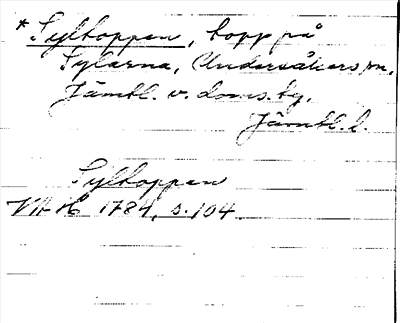 * Syltoppen, topp på
Sylarna, Undersåkers sn,
Jämtl. v. doms. tg,
Jämtl. l.
Syltoppen
VA H 1784, s. 104